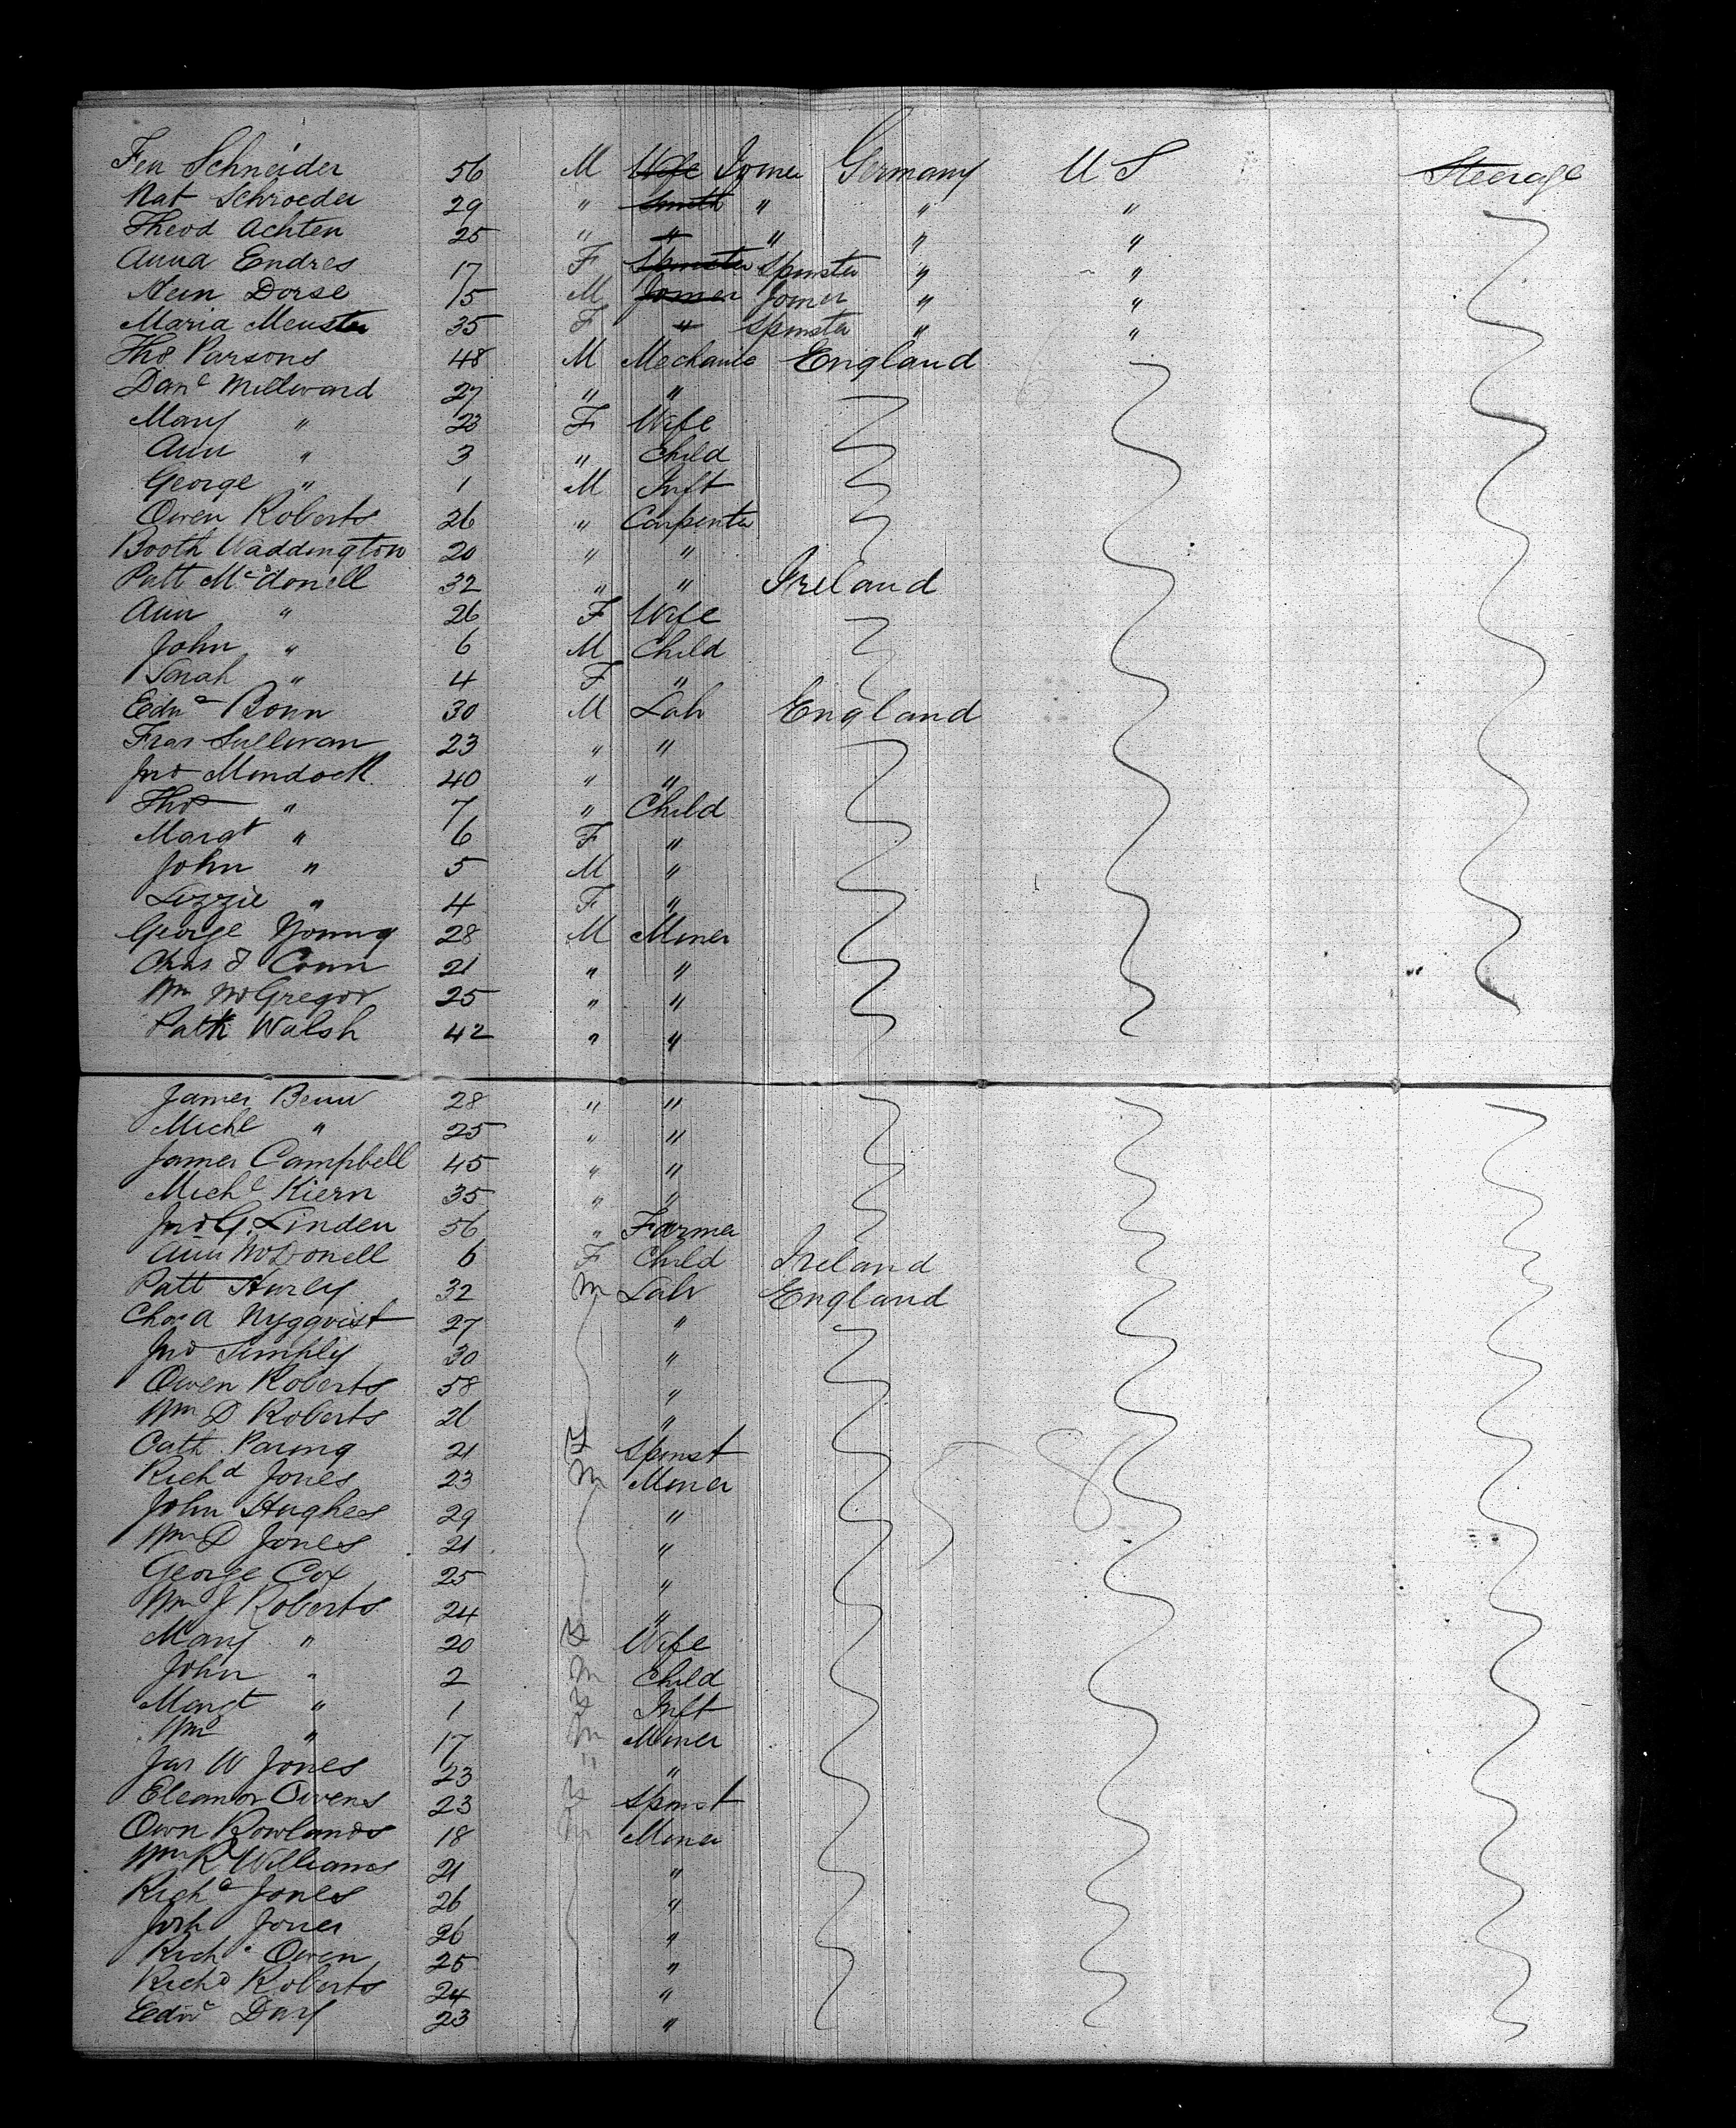 Fen Schneider 56 M Wife Joiner Germany U S Steerage
Nat Schroeder 29 " Smith " " "
Theod Achten 25 " " " " "
Anna Endres 17 F Spinster Spinster " "
Hein Dorse 15 M Joiner Joiner " "
Maria Menster 35 F " Spinster " "
Thos Parsons 48 M Mechanic England
Danl Millward 27 " "
Mary " 23 F Wife
Ann " 3 " Child
George " 1 M Inft
Owen Roberts 26 " Carpenter
Booth Waddington 20 " "
Patt McDonell 32 " " Ireland
Ann " 26 F Wife
John " 6 M Child
Sarah " 4 F "
Edwd Bonn 30 M Labr England
Fras Sullivan 23 " "
Jno Mondock 40 " "
Thos " 7 " Child
Margt " 6 F "
John " 5 M "
Lizzie " 4 F "
George Young 28 M Miner
Chas J Conn 21 " "
Wm McGregor 25 " "
Patk Walsh 42 " "
James Benn 28 " "
Michl " 25 " "
James Campbell 45 " "
Michl Kiern 35 " "
Jno G. Linden 56 " Farmer
Ann McDonell 6 F Child Ireland
Patt Hurly 32 M Labr England
Chas A Nygqvist 27 "
Jno Simply 30 "
Owen Roberts 58 "
Wm D Roberts 26 "
Cath 21 F Spinst
Richd Jones 23 M Miner
John Hughes 29 "
Wm D Jones 21 "
George Cox 25 "
Wm J Roberts 24 "
Mary " 20 F Wife
John " 2 M Child
Margt " 1 F Inft
Wm " 17 M Miner
Jas W Jones 23 " "
Eleanor Owens 23 F Spinst
Owen Rowlands 18 M Miner
Wm R Williams 21 "
Richd Jones 26 "
Josh Jones 26 "
Richd Owen 25 "
Richd Roberts 24 "
Edwd Day 23 "